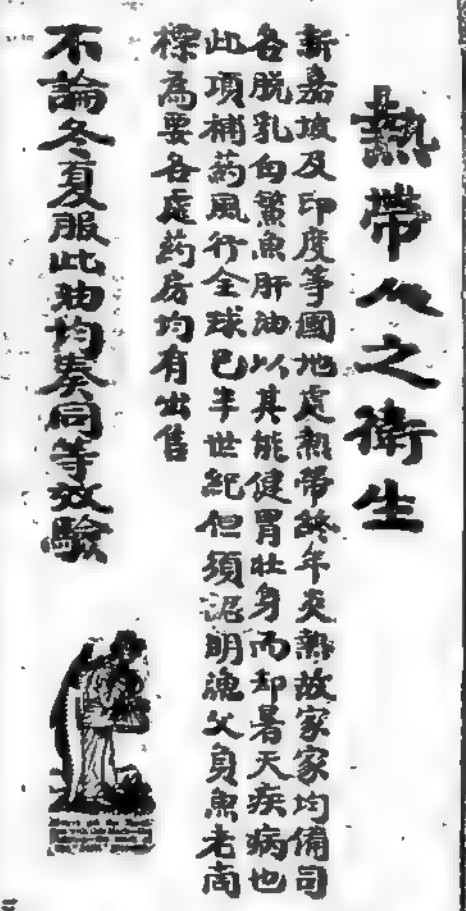 熱帶人之衛生
新嘉坡及印度等國地處熱帶終年炎熱故家家均備司
各脫乳白鰵魚肝油以其能健胃壯身而却暑天疾病也
此項補葯風行全球已半世紀但須認明漁父負魚老商
標為要各處葯房均有出售
不論冬夏服此油均奏同等效驗